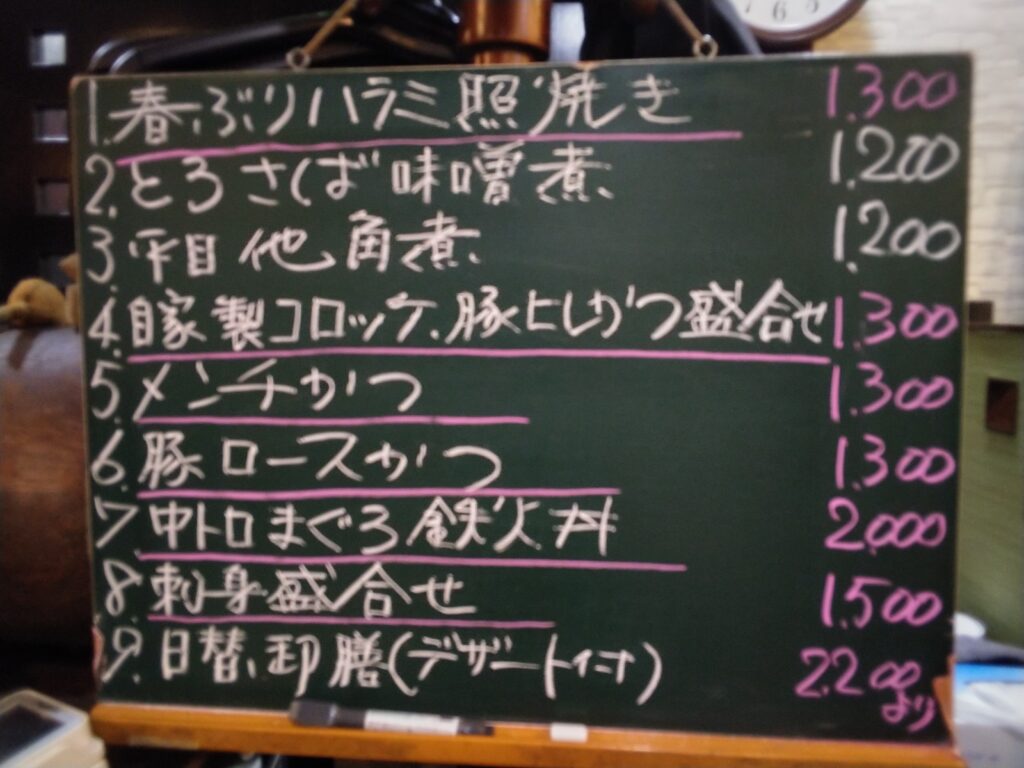 1. 春ぶりハラミ照焼き 1.300
2. とろさば味噌煮 1.200
3. 平目他角煮 1.200
4. 自家製コロッケ、豚ヒレかつ盛合せ 1.300
5. メンチかつ 1.300
6. 豚ロースかつ 1.300
7. 中トロまぐろ鉄火丼 2.000
8. 刺身盛合せ 1.500
9. 日替、御膳(デザート付) 2.200より